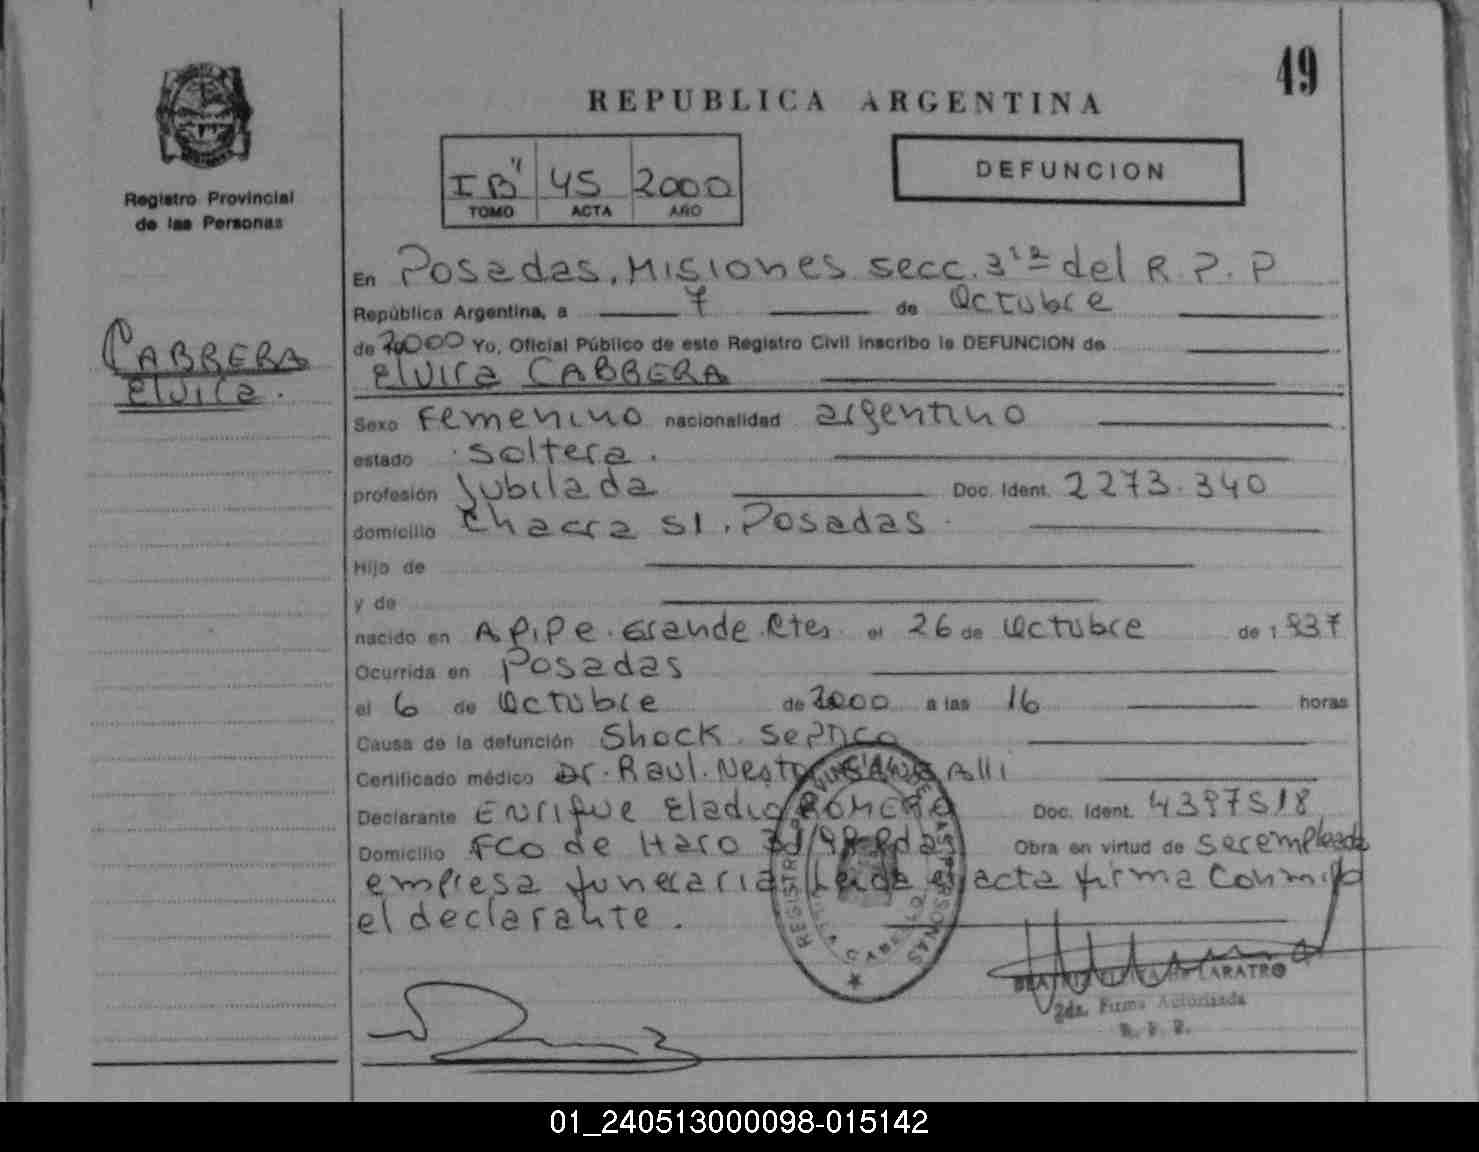 49
REPUBLICA ARGENTINA
Registro Provincial
de las Personas
IB" 45 2000
TOMO ACTA AÑO
DEFUNCION
CABRERA
Elvira.
En Posadas, Misiones secc. 3ra del R.P.P
República Argentina, a 7 de Octubre
de 2000 Yo, Oficial Público de este Registro Civil inscribo la DEFUNCION de
Elvira CABRERA
Sexo Femenino nacionalidad argentino
estado soltera.
profesión Jubilada Doc. Ident. 2273.340
domicilio Chacra 51. Posadas
Hijo de
y de
nacido en Apipe Grande Ctes el 26 de Octubre de 1937
Ocurrida en Posadas
el 6 de Octubre de 2000 a las 16 horas
Causa de la defunción Shock Septico
Certificado médico Dr. Raul Nestor
Declarante Enrique Eladio ROMERO Doc. Ident. 4397518
Domicilio Fco de Haro Obra en virtud de ser empleado
empresa funeraria Leida el acta firma conmigo
el declarante.
2da. Firma Autorizada
R. P. P.
01_240513000098-015142